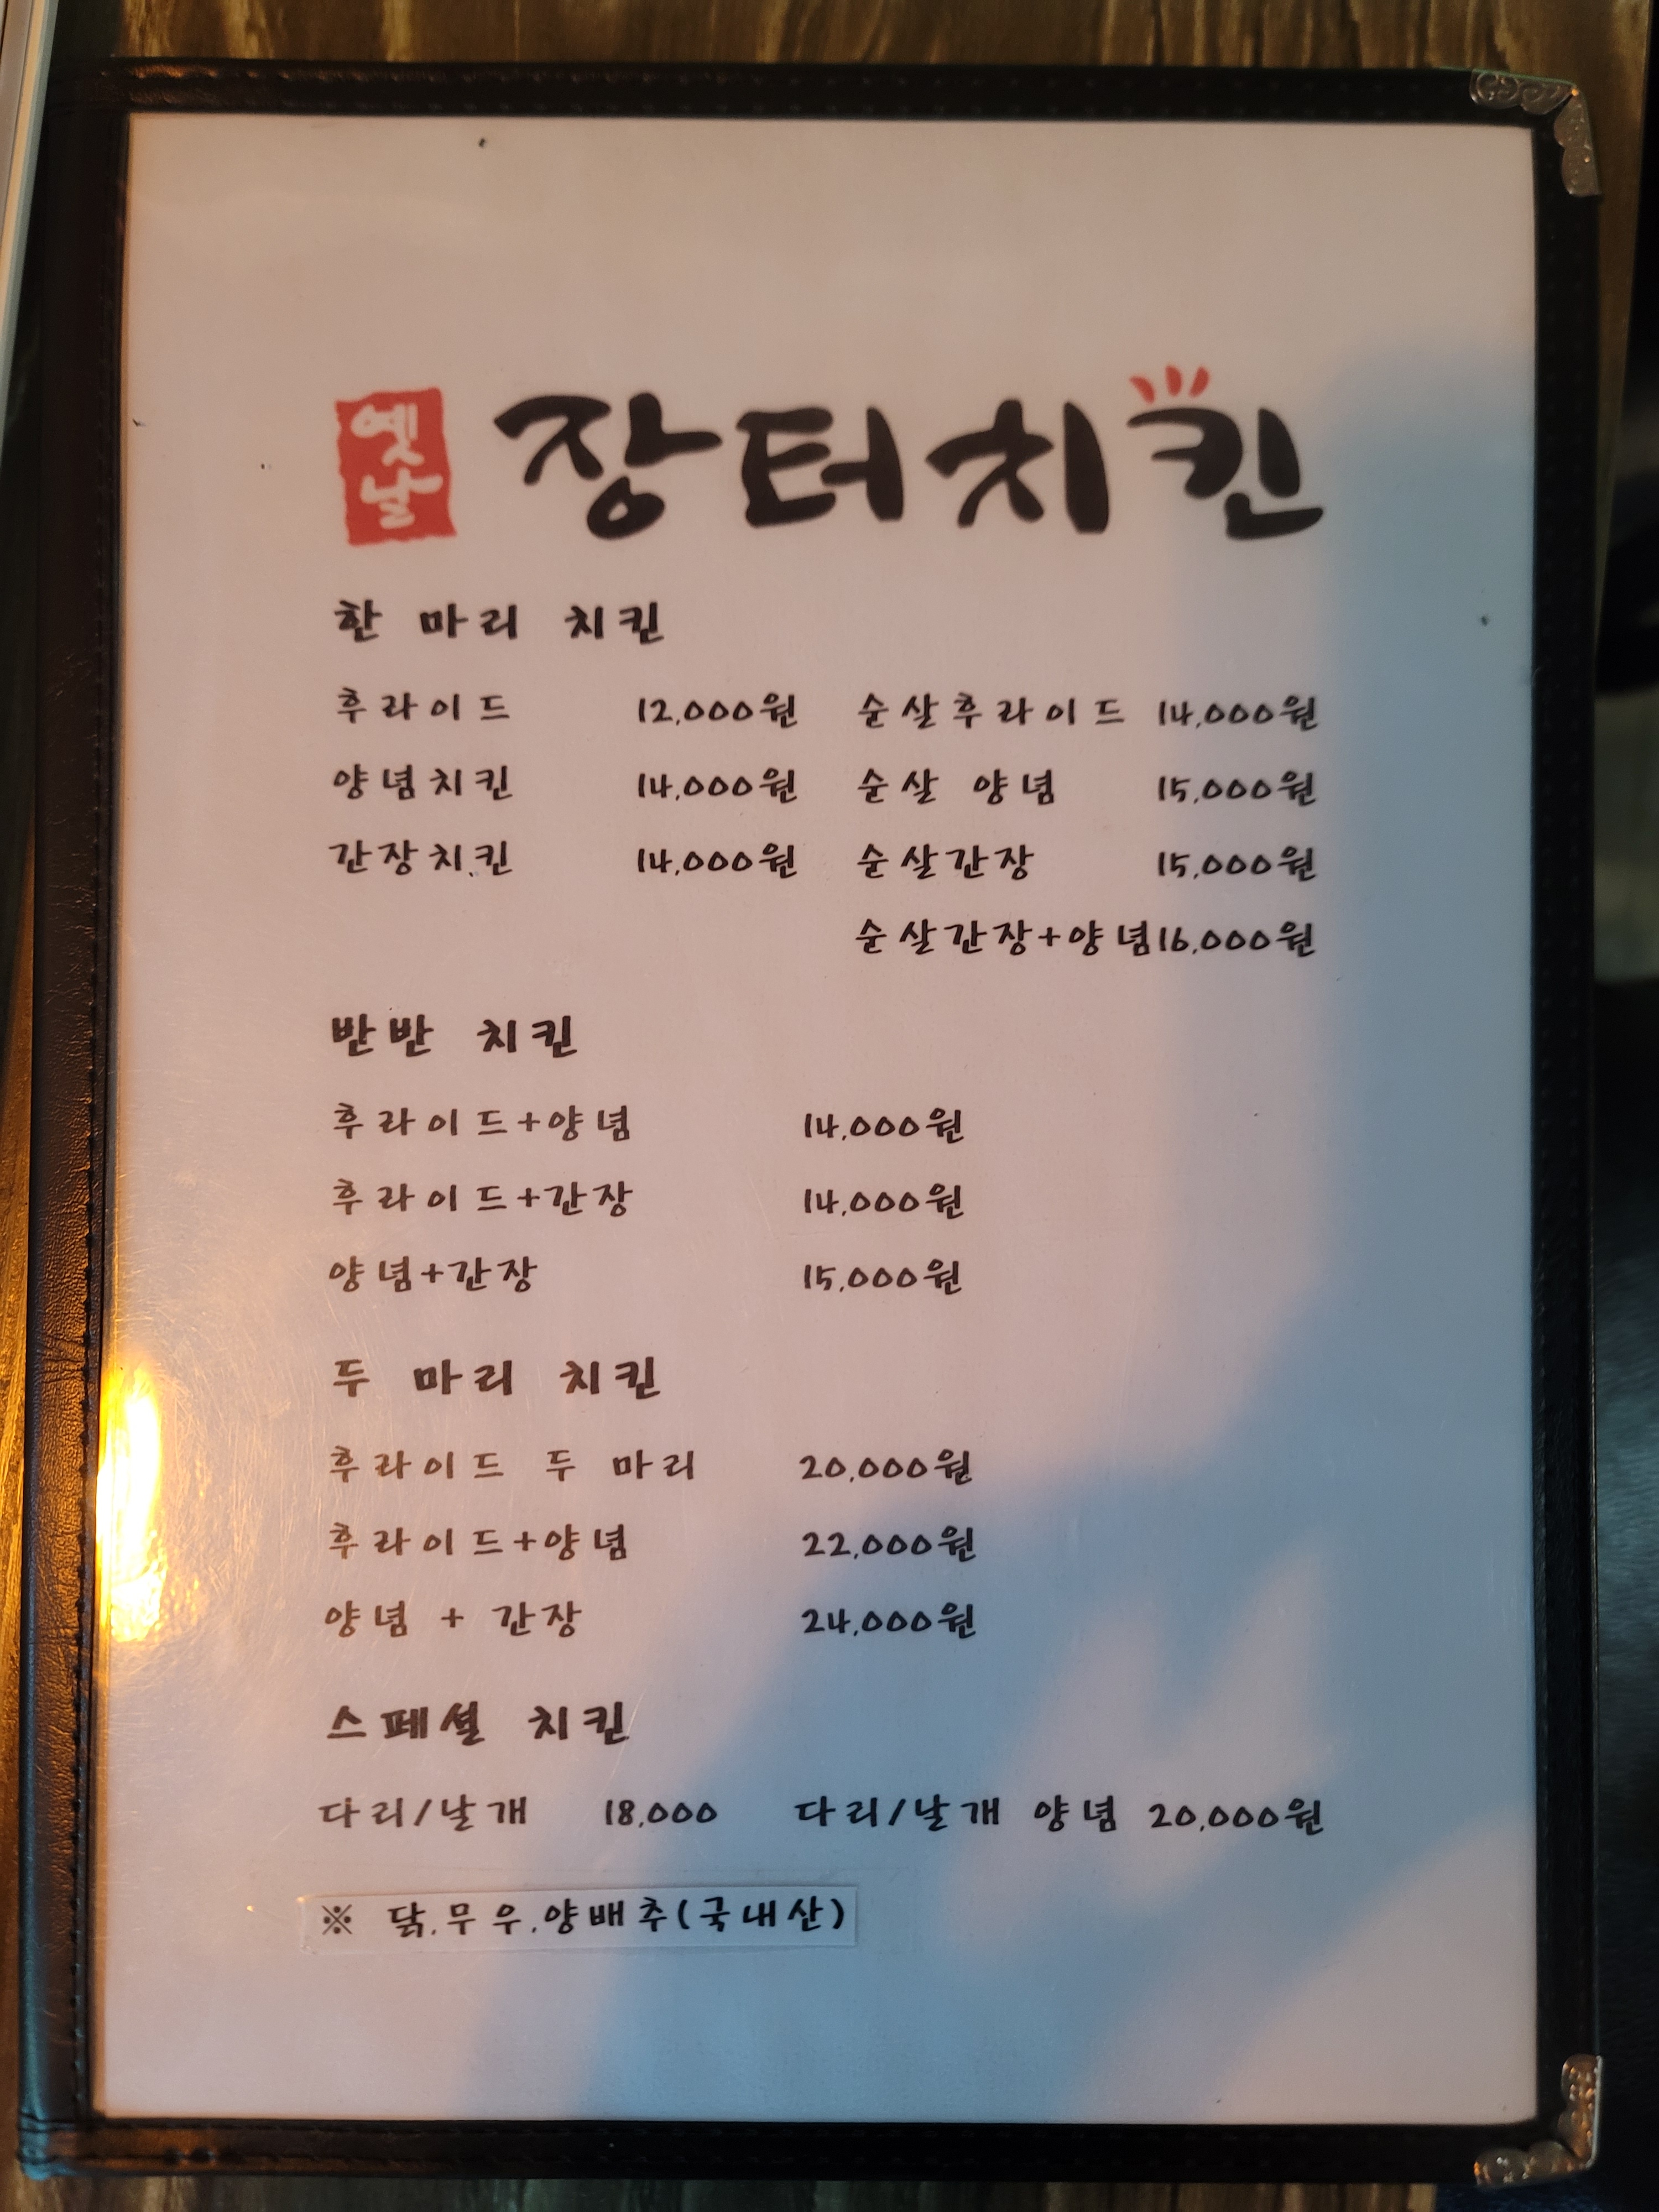 옛날 장터치킨
한 마리 치킨
후라이드 12,000원 순살후라이드 14,000원
양념치킨 14,000원 순살 양념 15,000원
간장치킨 14,000원 순살간장 15,000원
순살간장+양념16,000원
반반 치킨
후라이드+양념 14,000원
후라이드+간장 14,000원
양념+간장 15,000원
두 마리 치킨
후라이드 두 마리 20,000원
후라이드+양념 22,000원
양념 + 간장 24,000원
스페셜 치킨
다리/날개 18,000 다리/날개 양념 20,000원
※ 닭.무우.양배추(국내산)